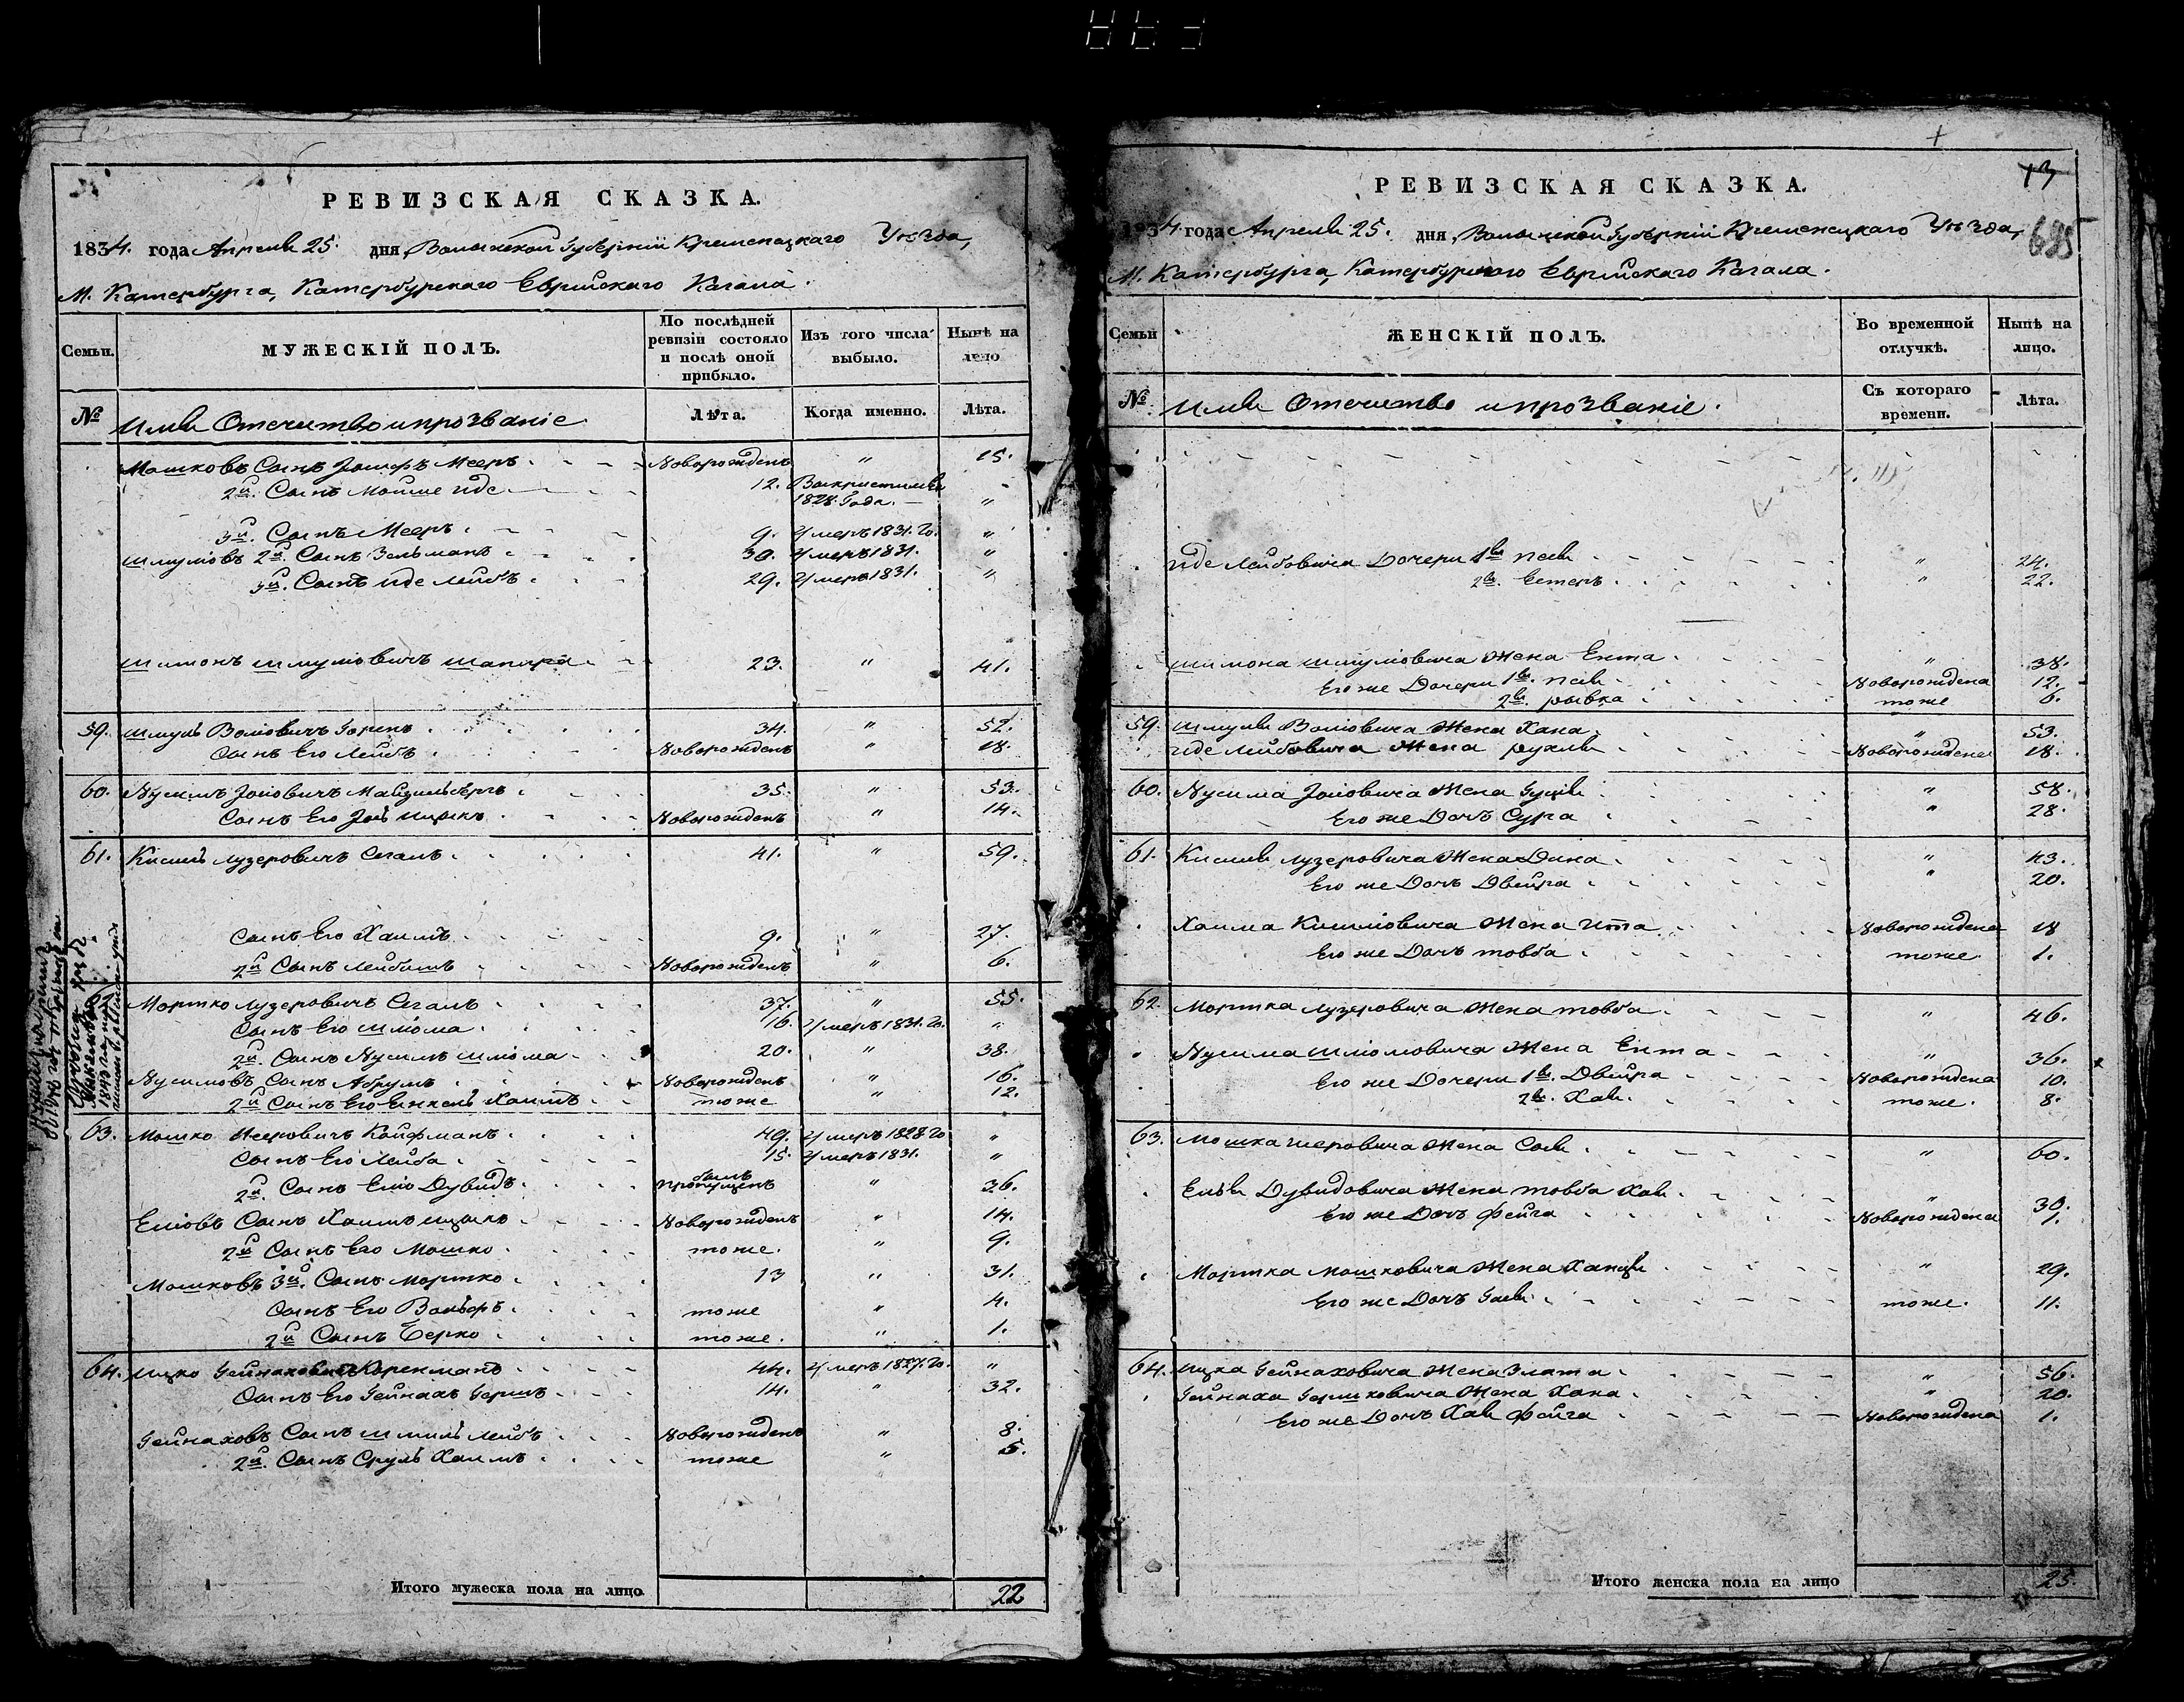 РЕВИЗСКАЯ СКАЗКА.
1834. года Апреля 25. дня, Волынской Губерніи Кременецкаго Уѣзда,
М. Катербурга, Катербурскаго Еврейскаго Кагала.
Семьи.
МУЖЕСКІЙ ПОЛЪ.
По послѣдней ревизіи состояло и послѣ оной прибыло.
Изъ того числа выбыло.
Нынѣ на лицо
№
Имя Отечитво и прозваніе
Лѣта.
Когда именно.
Лѣта.
Мошковъ Сынъ Іосифъ Мееръ Новорожденъ " 15.
2й. Сынъ Мойше Иде 12. 1828. Года. "
3й. Сынъ Мееръ 9. Умеръ 1831. Го. "
Шмулiовъ 2й. Сынъ Зельманъ 30. Умеръ 1831. "
3й. Сынъ Иде Лейбъ 29. Умеръ 1831. "
Шимонъ Шмулiовичъ Шапира 23. " 41.
59. Шмуль Волiовичъ Горенъ 34. " 52.
Сынъ Его Лейбъ Новорожденъ " 18.
60. Нусимъ Іосiовичъ 35. " 53.
Сынъ Его Іось Ицыкъ Новорожденъ " 14.
61. Кисиль Лузеровичъ Сегалъ 41. " 59.
Сынъ Его Хаимъ 9. " 27.
2й Сынъ Лейбишъ Новорожденъ " 6.
62. Мортко Лузеровичъ Сегалъ 37. " 55.
Сынъ Его Шлiома 16. Умеръ 1831. Го. "
2й. Сынъ Нусимъ Шлiома 20. " 38.
Нусимовъ Сынъ Абрумъ Новорожденъ " 16.
2й Сынъ Его Енкель Хаимъ тоже " 12.
63. Мошко Иееровичъ Койфманъ 49. Умеръ 1828 Го "
Сынъ Его Лейба 15. Умеръ 1831. "
2й. Сынъ Елiо Дувидъ былъ пропущенъ " 36.
Елiовъ Сынъ Хаимъ Ицыкъ Новорожденъ " 14.
2й Сынъ Его Мошко тоже. " 9.
Мошковъ 3й. Сынъ Мортко 13 " 31.
Сынъ Его Вольфъ тоже " 4.
2й Сынъ Берко тоже. " 1.
64. Ицко Гейнаховичъ 44. Умеръ 1827. Го. "
Сынъ Его Гейнахъ Гершъ 14. " 32.
Гейнаховъ Сынъ Шмиль Лейбъ Новорожденъ " 8.
2й. Сынъ Сруль Хаимъ тоже " 5.
Итого мужеска пола на лицо 22
13
685
РЕВИЗСКАЯ СКАЗКА.
1834. года Апреля 25. дня, Волынской Губерніи Кременецкаго Уѣзда,
М. Катербурга, Катербурскаго Еврейскаго Кагала.
Семьи
ЖЕНСКІЙ ПОЛЪ.
Во временной отлучкѣ.
Нынѣ на лицо.
№
Имя Отечитво и прозваніе.
Съ котораго времени.
Лѣта.
Иде Лейбовича Дочери 1я Песя " 24.
2я. Естеръ " 22.
Шимона Шмулiовича Жена Ента " 38.
Его же Дочери 1я. Песя Новорождена 12.
2я. Рывка тоже 6.
59. Шмуля Волiовича Жена Хана " 53.
Иде Лейбовича Жена Рухля Новорождена 18.
60. Нусима Іосiовича Жена " 58.
Его же Дочь Сура " 28.
61. Кисиля Лузеровича Жена Дина " 43.
Его же Дочь Двейра " 20.
Хаима Кисилiовича Жена Ита Новорождена 18
Его же Дочь Товба тоже 1.
62. Мортка Лузеровича Жена Товба " 46.
Нусима Шлiомовича Жена Ента " 36.
Его же Дочери 1я. Двейра Новорождена 10.
2я. Хая тоже. 8.
63. Мошка Иеровича Жена Сося " 60.
Елья Дувидовича Жена Товба Хая " 30.
Его же Дочь Фейга Новорождена 1.
Мортка Мошковича Жена Ханця " 29.
Его же Дочь тоже. 11.
64. Ицка Гейнаховича Жена Злата " 56.
Гейнаха Гершковича Жена Хана " 20.
Его же Дочь Хая Фейга Новорождена 1.
Итого женска пола на лицо 25.